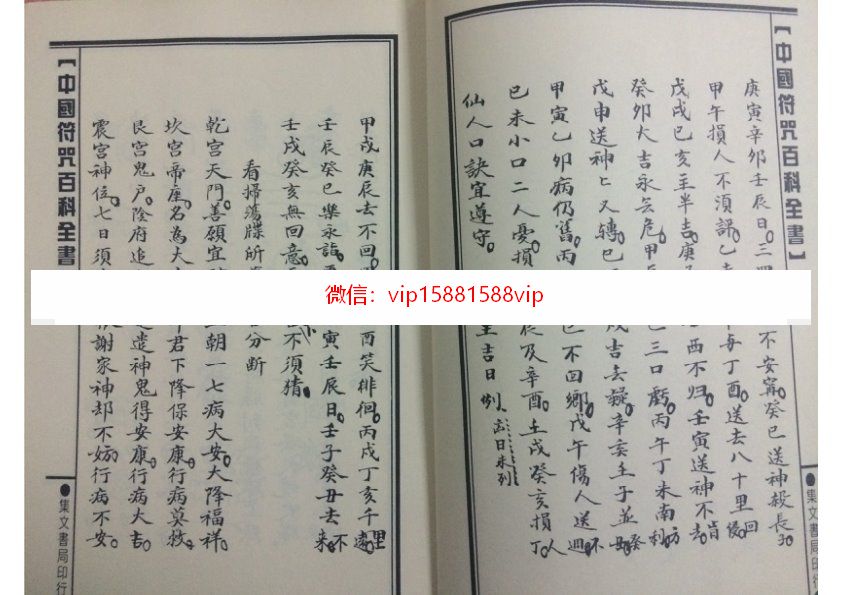 【中國符咒百科全書】
庚寅辛卯壬辰日。三
不安寗。癸巳送神殺長子
甲午損人不須
丁酉。送去八十里
戊戌己亥主半吉。庚
西不归。壬寅送神不肯去
癸卯大吉永無危。甲
三口虧。丙午丁未南方利
戊申送神七又轉。巳
戊吉去
辛亥壬子並
甲寅乙卯病仍舊。丙
不回鄉。戊午傷人送
巳未小口二人憂。損
辰及辛酉。壬戌癸亥損丁人
仙人口訣宜遵守。
吉日例
●集文書局印行
微信：vip15881588vip
甲戌庚辰去不回
酉笑徘徊。丙戌丁亥千里遠
壬辰癸巳樂永詣。
寅壬辰日。壬子癸丑去不來
壬戌癸亥無回意。
不須猜。
看掃蕩牒所
分断
乾宮天門。善願宜
朝一七病大安。大降福祥。
坎宮帝座。名為大
君下降保安康。行病莫救。
艮宮鬼户。陰府追
遣神鬼得安康。行病大吉。
震宮神位。七日須
謝家神却不妨。行病不安。
【中國符咒百科全書
●集文書局印行